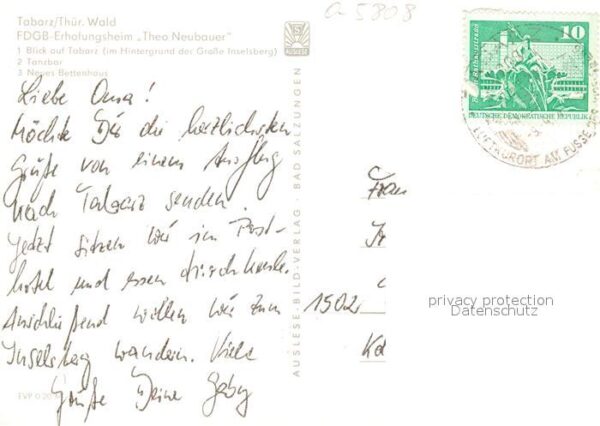 Tabarz/Thür. Wald
FDGB-Erholungsheim „Theo Neubauer"
1 Blick auf Tabarz (im Hintergrund der Große Inselsberg)
2 Tanzbar
3 Neues Bettenhaus
Liebe Oma!
Möchte Dir die herzlichsten
Grüße von einem Ausflug
nach Tabarz senden.
Jetzt sitzen wir im Post-
hotel und essen
Anschließend wollen wir zum
Inselsberg wandern. Viele
Grüße Deine Gaby
EVP 0.20
AUSLESE-BILD-VERLAG · BAD SALZUNGEN
AUSLESE
a 5808
10
Rathausstraße
DEUTSCHE DEMOKRATISCHE REPUBLIK
LUFTKURORT AM FUSSE DES
Frau
1502
privacy protection
Datenschutz